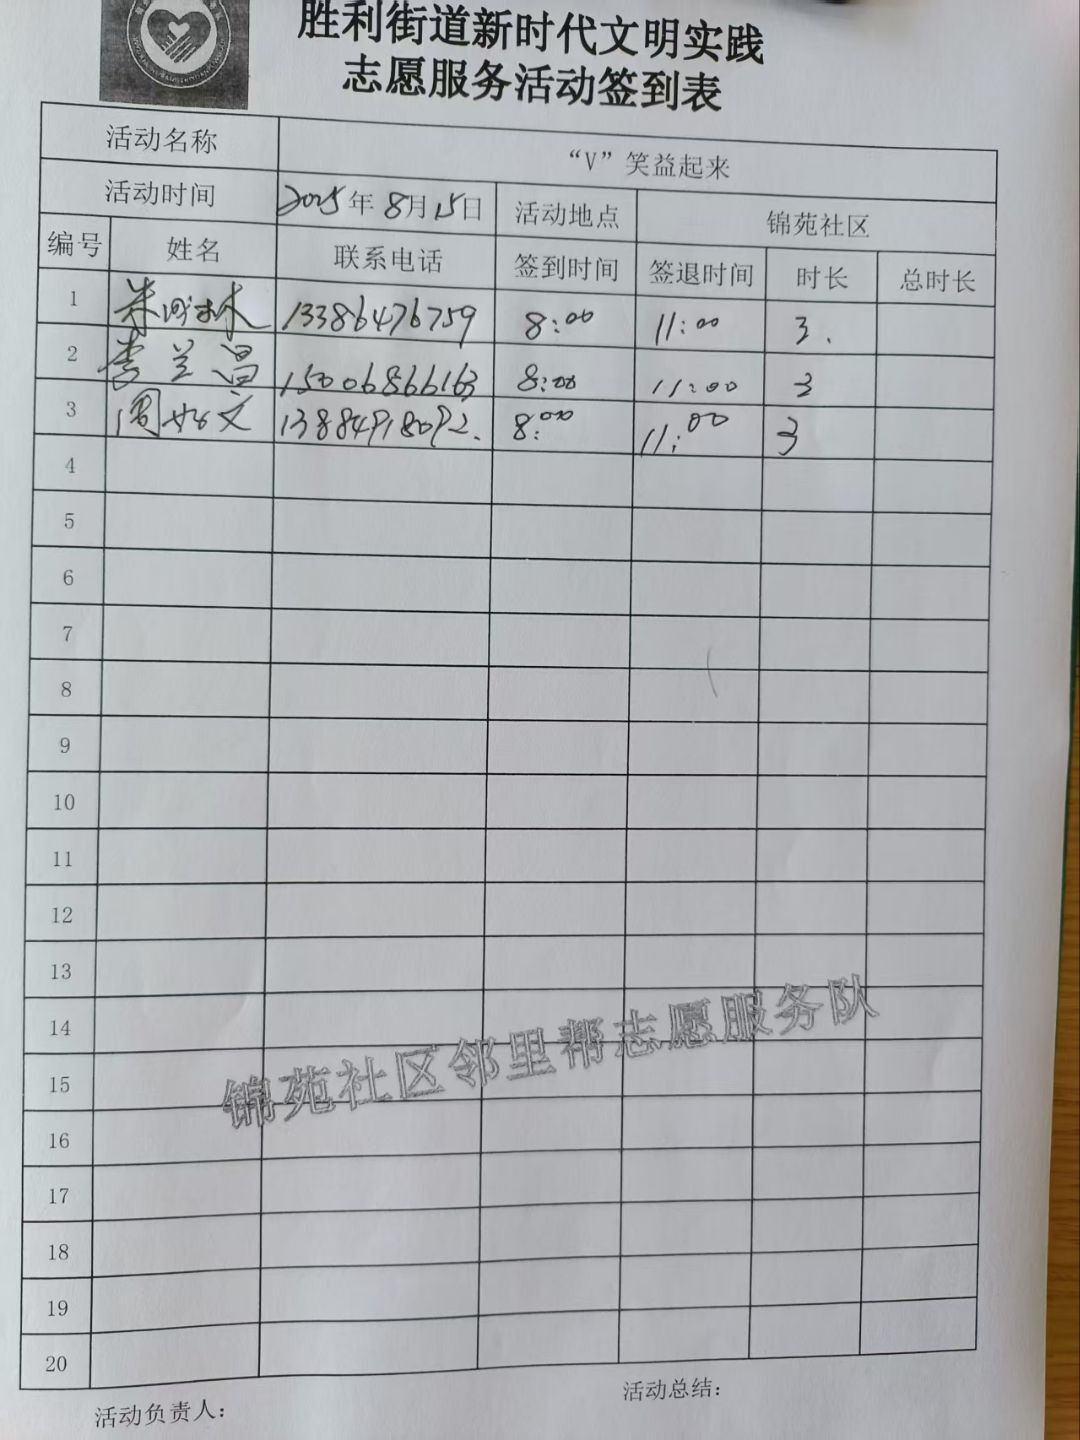 胜利街道新时代文明实践
志愿服务活动签到表
活动名称 “V”笑益起来
活动时间 2025年8月15日 活动地点 锦苑社区
编号 姓名 联系电话 签到时间 签退时间 时长 总时长
1 13386476759 8:00 11:00 3.
2 李兰昌 15006866163 8:00 11:00 3
3 周如文 13884918092. 8:00 11:00 3
4
5
6
7
8
9
10
11
12
13
14
15
16
17
18
19
20
锦苑社区邻里帮志愿服务队
活动负责人: 活动总结: